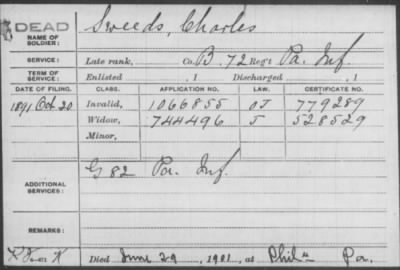 DEAD
NAME OF SOLDIER: Sweeds, Charles
SERVICE: Late rank, Co. B, 72 Reg't Pa. Inf.
TERM OF SERVICE: Enlisted , 1 Discharged , 1
DATE OF FILING. CLASS. APPLICATION NO. LAW. CERTIFICATE NO.
1891 Oct. 20 Invalid, 1066855 779289
Widow, 744496 528529
Minor,
G 82 Pa. Inf.
ADDITIONAL SERVICES:
REMARKS:
Died June 29, 1901, at Phila Pa.